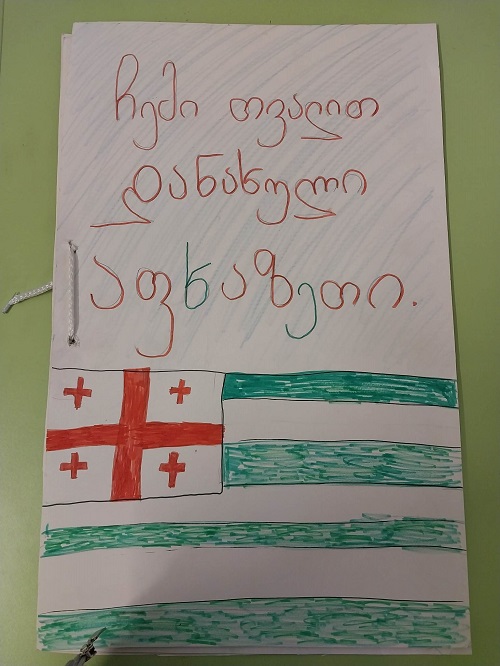 ჩემი თვალით
დანახული
აფხაზეთი.